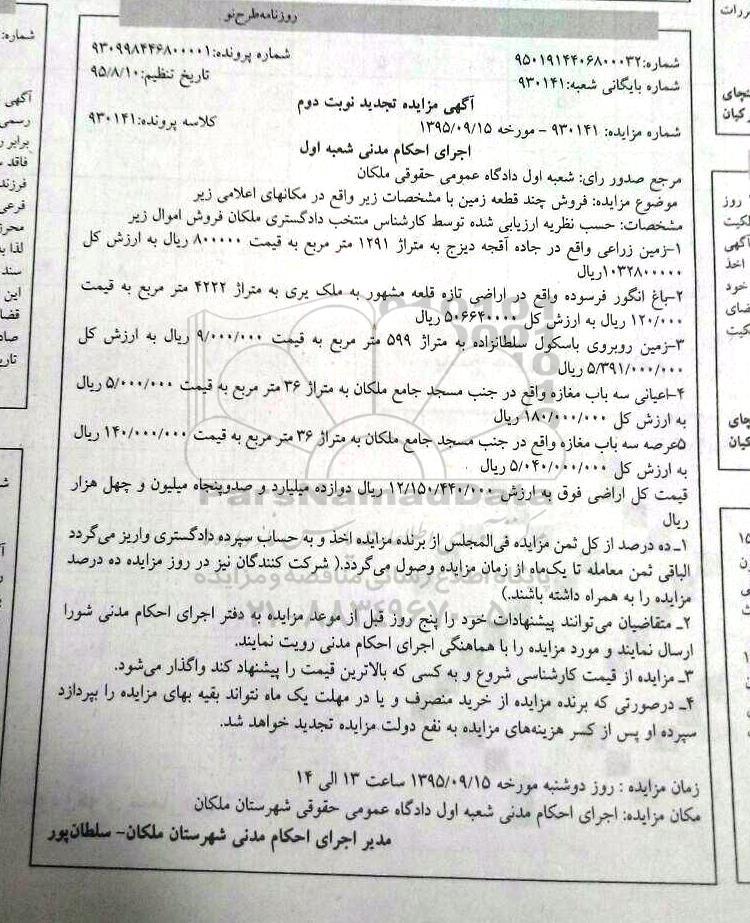 روزنامه طرح نو
شماره: ۹۵۰۱۹۱۴۴۰۶۸۰۰۰۳۲
شماره پرونده: ۹۳۰۹۹۸۴۴۶۸۰۰۰۰۱
شماره بایگانی شعبه: ۹۳۰۱۴۱
تاریخ تنظیم: ۹۵/۸/۱۰
آگهی مزایده تجدید نوبت دوم
شماره مزایده: ۹۳۰۱۴۱ - مورخه ۱۳۹۵/۰۹/۱۵
کلاسه پرونده: ۹۳۰۱۴۱
اجرای احکام مدنی شعبه اول
مرجع صدور رای: شعبه اول دادگاه عمومی حقوقی ملکان
موضوع مزایده: فروش چند قطعه زمین با مشخصات زیر واقع در مکانهای اعلامی زیر
مشخصات: حسب نظریه ارزیابی شده توسط کارشناس منتخب دادگستری ملکان فروش اموال زیر
۱-زمین زراعی واقع در جاده آقجه دیزج به متراژ ۱۲۹۱ متر مربع به قیمت ۸۰۰۰۰۰ ریال به ارزش کل
۱۰۳۲۸۰۰۰۰۰ریال
۲-باغ انگور فرسوده واقع در اراضی تازه قلعه مشهور به ملک یری به متراژ ۴۲۲۲ متر مربع به قیمت
۱۲۰/۰۰۰ ریال به ارزش کل ۵۰۶۶۴۰۰۰۰ ریال
۳-زمین روبروی باسکول سلطانزاده به متراژ ۵۹۹ متر مربع به قیمت ۹/۰۰۰/۰۰۰ ریال به ارزش کل
۵/۳۹۱/۰۰۰/۰۰۰ ریال
۴-اعیانی سه باب مغازه واقع در جنب مسجد جامع ملکان به متراژ ۳۶ متر مربع به قیمت ۵/۰۰۰/۰۰۰ ریال
به ارزش کل ۱۸۰/۰۰۰/۰۰۰ ریال
۵عرصه سه باب مغازه واقع در جنب مسجد جامع ملکان به متراژ ۳۶ متر مربع به قیمت ۱۴۰/۰۰۰/۰۰۰ ریال
به ارزش کل ۵/۰۴۰/۰۰۰/۰۰۰ ریال
قیمت کل اراضی فوق به ارزش ۱۲/۱۵۰/۴۴۰/۰۰۰ ریال دوازده میلیارد و صدوپنجاه میلیون و چهل هزار
ریال
۱ـ ده درصد از کل ثمن مزایده فی‌المجلس از برنده مزایده اخذ و به حساب سپرده دادگستری واریز می‌گردد
الباقی ثمن معامله تا یک‌ماه از زمان مزایده وصول می‌گردد.( شرکت کنندگان نیز در روز مزایده ده درصد
مزایده را به همراه داشته باشند.)
۲ـ متقاضیان می‌توانند پیشنهادات خود را پنج روز قبل از موعد مزایده به دفتر اجرای احکام مدنی شورا
ارسال نمایند و مورد مزایده را با هماهنگی اجرای احکام مدنی رویت نمایند.
۳ـ مزایده از قیمت کارشناسی شروع و به کسی که بالاترین قیمت را پیشنهاد کند واگذار می‌شود.
۴ـ درصورتی که برنده مزایده از خرید منصرف و یا در مهلت یک ماه نتواند بقیه بهای مزایده را بپردازد
سپرده او پس از کسر هزینه‌های مزایده به نفع دولت مزایده تجدید خواهد شد.
زمان مزایده : روز دوشنبه مورخه ۱۳۹۵/۰۹/۱۵ ساعت ۱۳ الی ۱۴
مکان مزایده: اجرای احکام مدنی شعبه اول دادگاه عمومی حقوقی شهرستان ملکان
مدیر اجرای احکام مدنی شهرستان ملکان- سلطان‌پور
ParsNamadData
پایگاه اطلاع رسانی مناقصه و مزایده